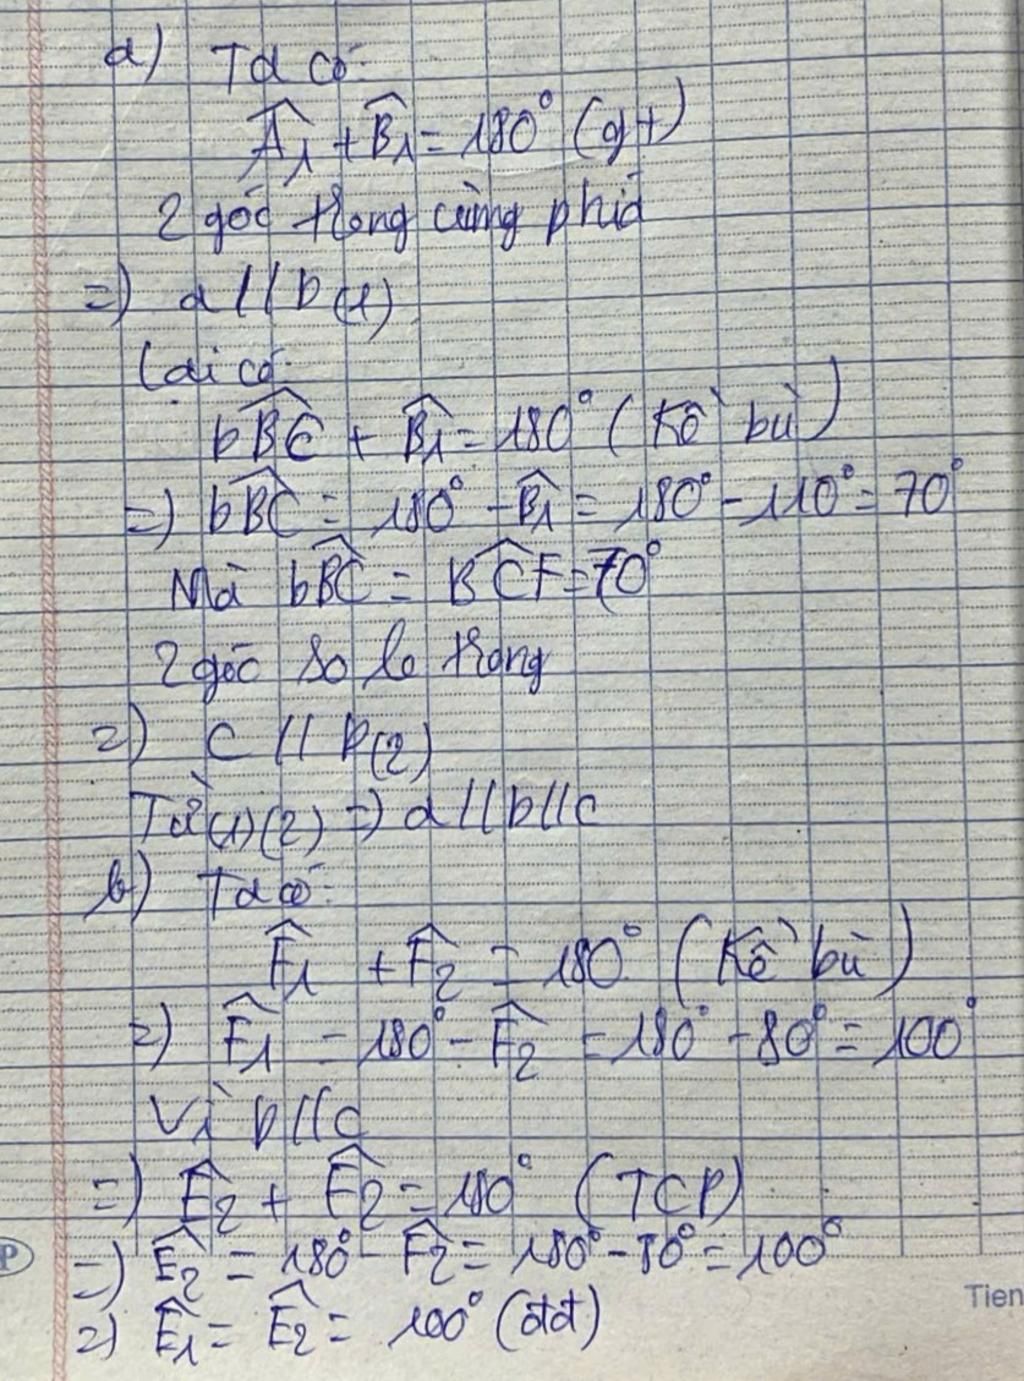 a) Ta có:
Â₁ + B̂₁ = 180° (gt)
2 góc trong cùng phía
=) a // b (1)
Lại có:
b̂BC + B̂₁ = 180° (Kề bù)
=) b̂BC = 180° - B̂₁ = 180° - 110° = 70°
Mà b̂BC = B̂CF = 70°
2 góc so le trong
=) c // b (2)
Từ (1)(2) =) a // b // c
b) Ta có:
F̂₁ + F̂₂ = 180° (Kề bù)
=) F̂₁ = 180° - F̂₂ = 180° - 80° = 100°
Vì b // c
=) Ê₂ + F̂₂ = 180° (TCP)
=) Ê₂ = 180° - F̂₂ = 180° - 80° = 100°
=) Ê₁ = Ê₂ = 100° (đđ)
Tien